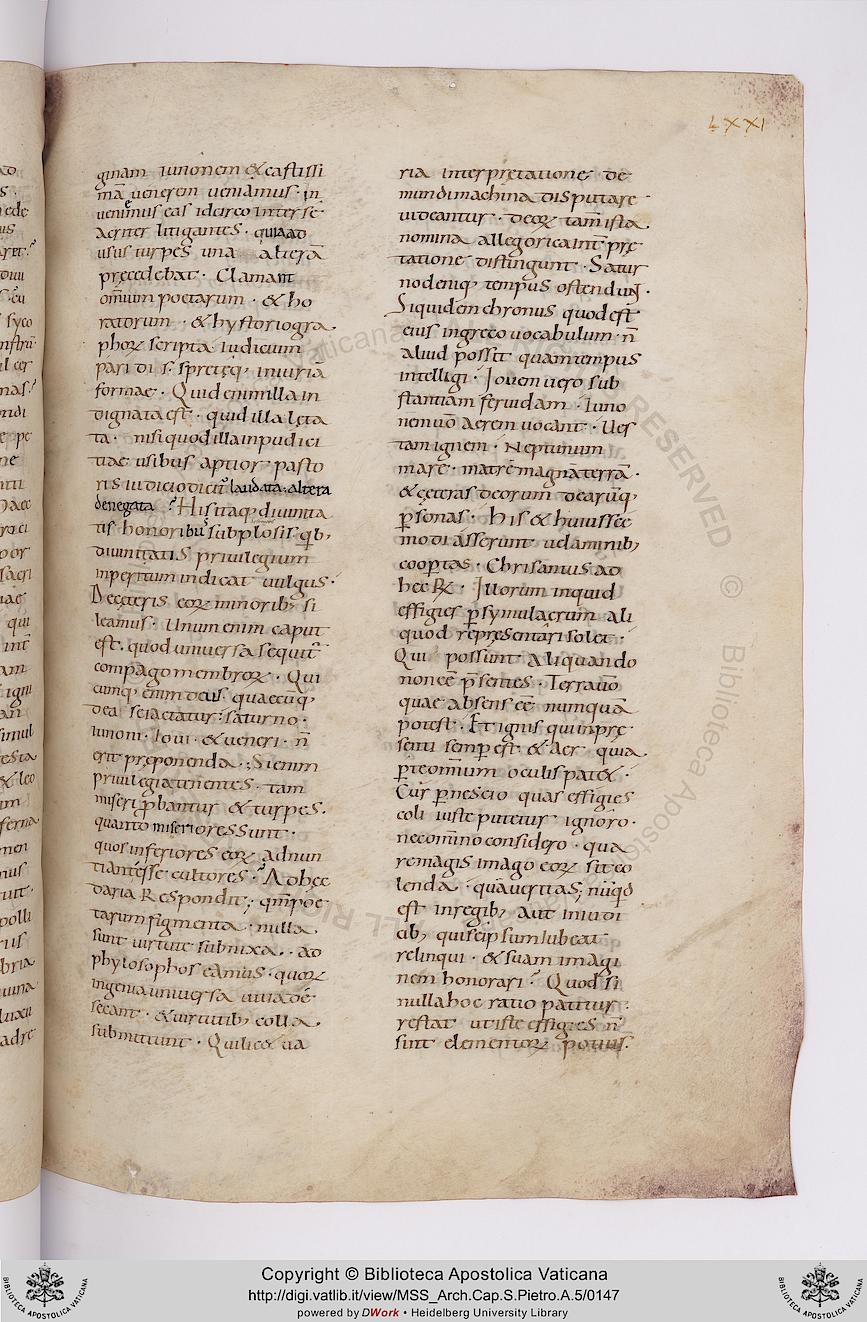 LXXI
ginam iunonem & castissi
mā uenerem ueniamus · in
ueniemus eas idcirco inter se
acriter litigantes · quia ad
usus turpes una alterā
precedebat · Clamant
omnium poetarum · & ho
ratorum · & hystoriogra
phorꝝ scripta iudicium
pari di s · spretęq; iniuriā
formae · Quid enim illa in
dignata est · quid illa lęta
ta · nisi quod illa inpudici
tiae usibus aptior pasto
ris iudicio dicit̄ laudata · altera
denegata · His itaq; diuinita
tis honoribus subplosis qb;
diuinitatis priuilegium
inperitum indicat uulgus ·
De cęteris eorꝝ minorib; si
leamus · Unum enim caput
est · quod uniuersa sequit̄
compago membrorꝝ · Qui
cumq; enim deus quaecūq;
dea se iactatur · saturno ·
iunoni · Ioui · & ueneri · n̄
erit preponenda · Si enim
priuilegia tenentes · tam
miseri ꝓbantur & turpes ·
quanto miseriores sunt ·
quos inferiores eorꝝ adnun
tiant esse cultores · Ad hęc
daria Respondit · qm̄ poe
tarum figmenta · nulla
sunt uirtute subnixa · ad
phylosophos eamus · quorꝝ
ingenia uniuersa uitia de
secant · & uirtutib; colla
submittunt · Qui licet ua
ria interpretatione de
mundi machina disputare
uideantur · deorꝝ tam ista
nomina allegorica int̄prę
tatione distingunt · Satur
no deniq; tempus ostendunt ·
Siquidem chronus quod est
eius in greco uocabulum · n̄
aliud possit quam tempus
intelligi · Iouem uero sub
stantiam feruidam · Iuno
nem uō aerem uocant · Ues
tam ignem · Neptunum
mare · matrē magnā terrā ·
& cęteras deorum dearūq;
ꝑsonas · His & huiusce
modi asserunt uelaminib;
coopertas · Chrisantus ad
hec Rx · Illorum inquid
effigies ꝑ symulacrum ali
quod representari solet ·
Qui possunt aliquando
non eē p̄sentes · Terra uō
quae absens eē numquā
potest · Et ignis qui inprę
senti semꝑ est & Aer quia
ꝑte omnium oculis patet ·
Cur ꝑ nescio quas effigies
coli iuste putetur ignoro ·
nec omino considero · qua
re magis imago eorꝝ sit co
lenda · quā ueritas · nūqid
est in regib; aut in iudi
cib; qui seipsum iubeat
relinqui · & suam imagi
nem honorari · Quod si
nulla hoc ratio patitur ·
restat ut iste effigies n̄
sint elementorꝝ potius ·
RESERVED
© Biblioteca Aposto
Copyright © Biblioteca Apostolica Vaticana
http://digi.vatlib.it/view/MSS_Arch.Cap.S.Pietro.A.5/0147
powered by DWork • Heidelberg University Library
BIBLIOTECA APOSTOLICA VATICANA
BIBLIOTECA APOSTOLICA VATICANA